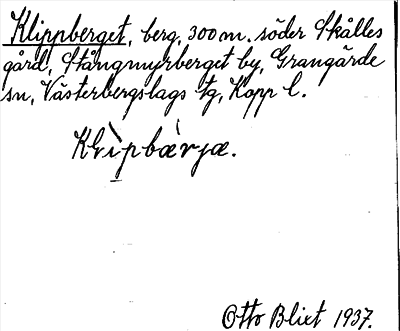 Klippberget, berg, 300 m. söder Skålles
gård, Stångmyrberget by, Grangärde
sn, Västerbergslags tg, Kopp l.
Klìpbæ̀rjæ.
Otto Blixt 1937.